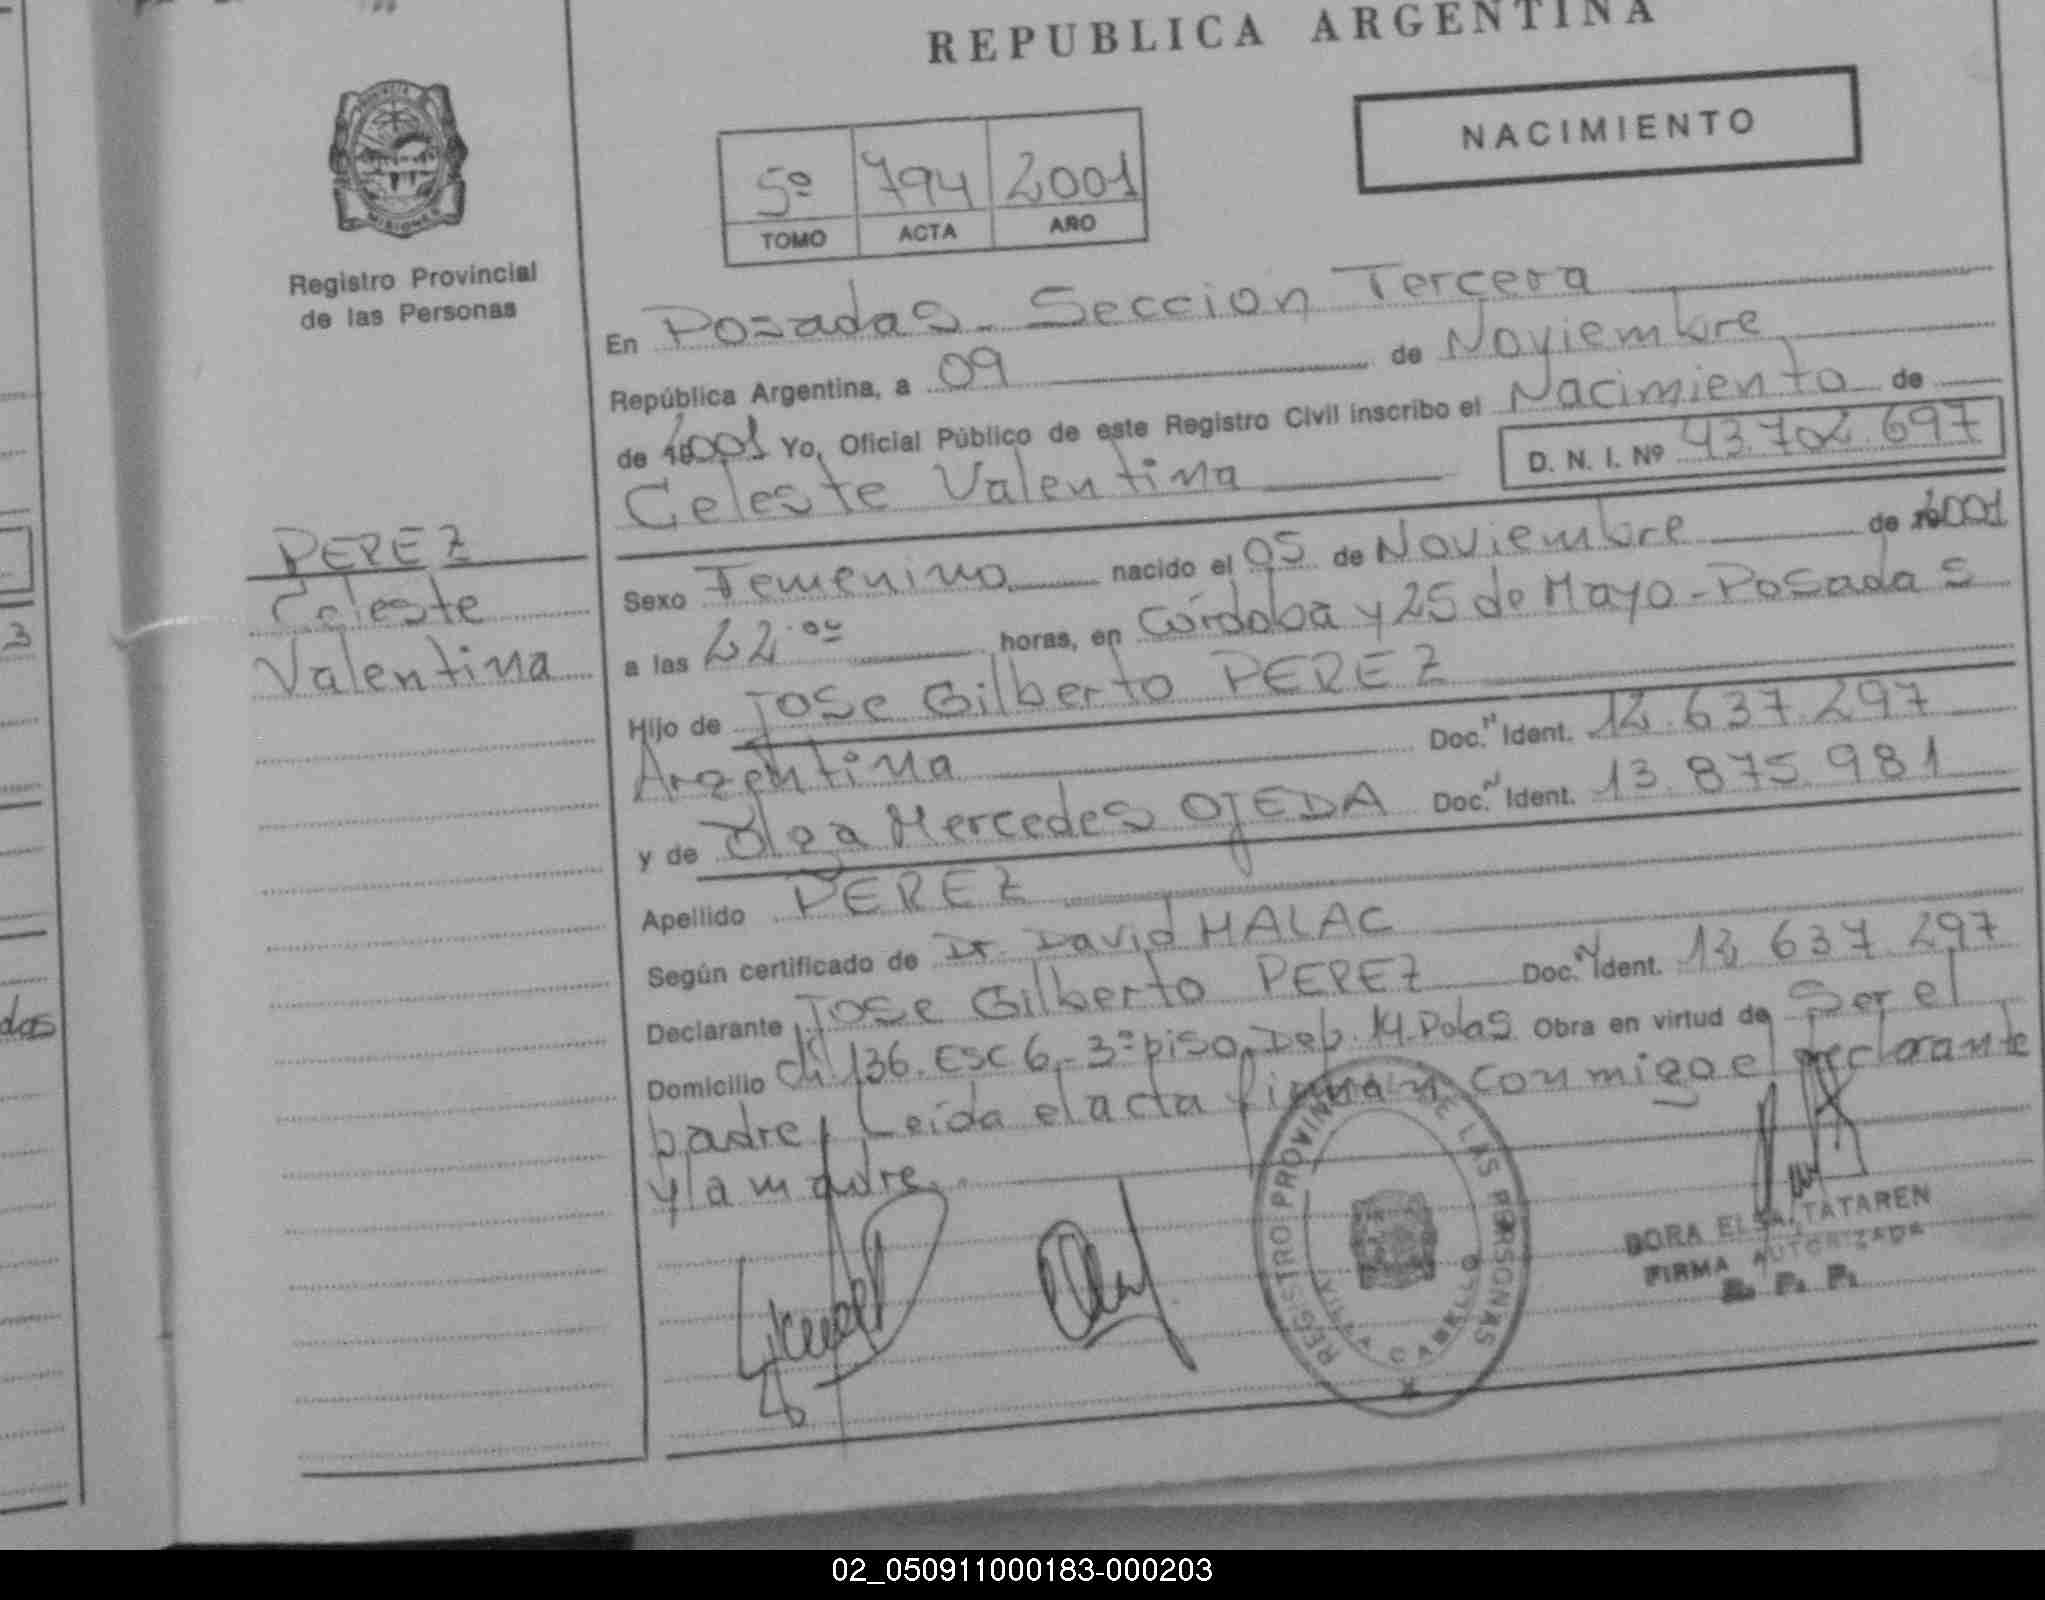 REPUBLICA ARGENTINA
NACIMIENTO
5º 794 2001
TOMO ACTA AÑO
Registro Provincial
de las Personas
En Posadas - Seccion Tercera
República Argentina, a 09 de Noviembre
de 2001 Yo, Oficial Público de este Registro Civil inscribo el Nacimiento de
Celeste Valentina D. N. I. Nº 43.702.697
PEREZ
Celeste
Valentina
Sexo Femenino nacido el 05 de Noviembre de 2001
a las 22.00 horas, en Córdoba y 25 de Mayo - Posadas
Hijo de Jose Gilberto PEREZ
Argentina Doc. N Ident. 12.637.297
y de Olga Mercedes OJEDA Doc. N Ident. 13.875.981
Apellido PEREZ
Según certificado de Dr. David HALAC
Declarante Jose Gilberto PEREZ Doc. N Ident. 12 637 297
Domicilio Ch 136. Esc 6 - 3º piso, Dep. 14. Pdas Obra en virtud de Ser el
padre, Leida el acta firman conmigo el declarante
y la madre.
REGISTRO PROVINCIAL DE LAS PERSONAS
VILLA CABELLO
DORA ELSA TATAREN
FIRMA AUTORIZADA
R. P. P.
3
das
02_050911000183-000203